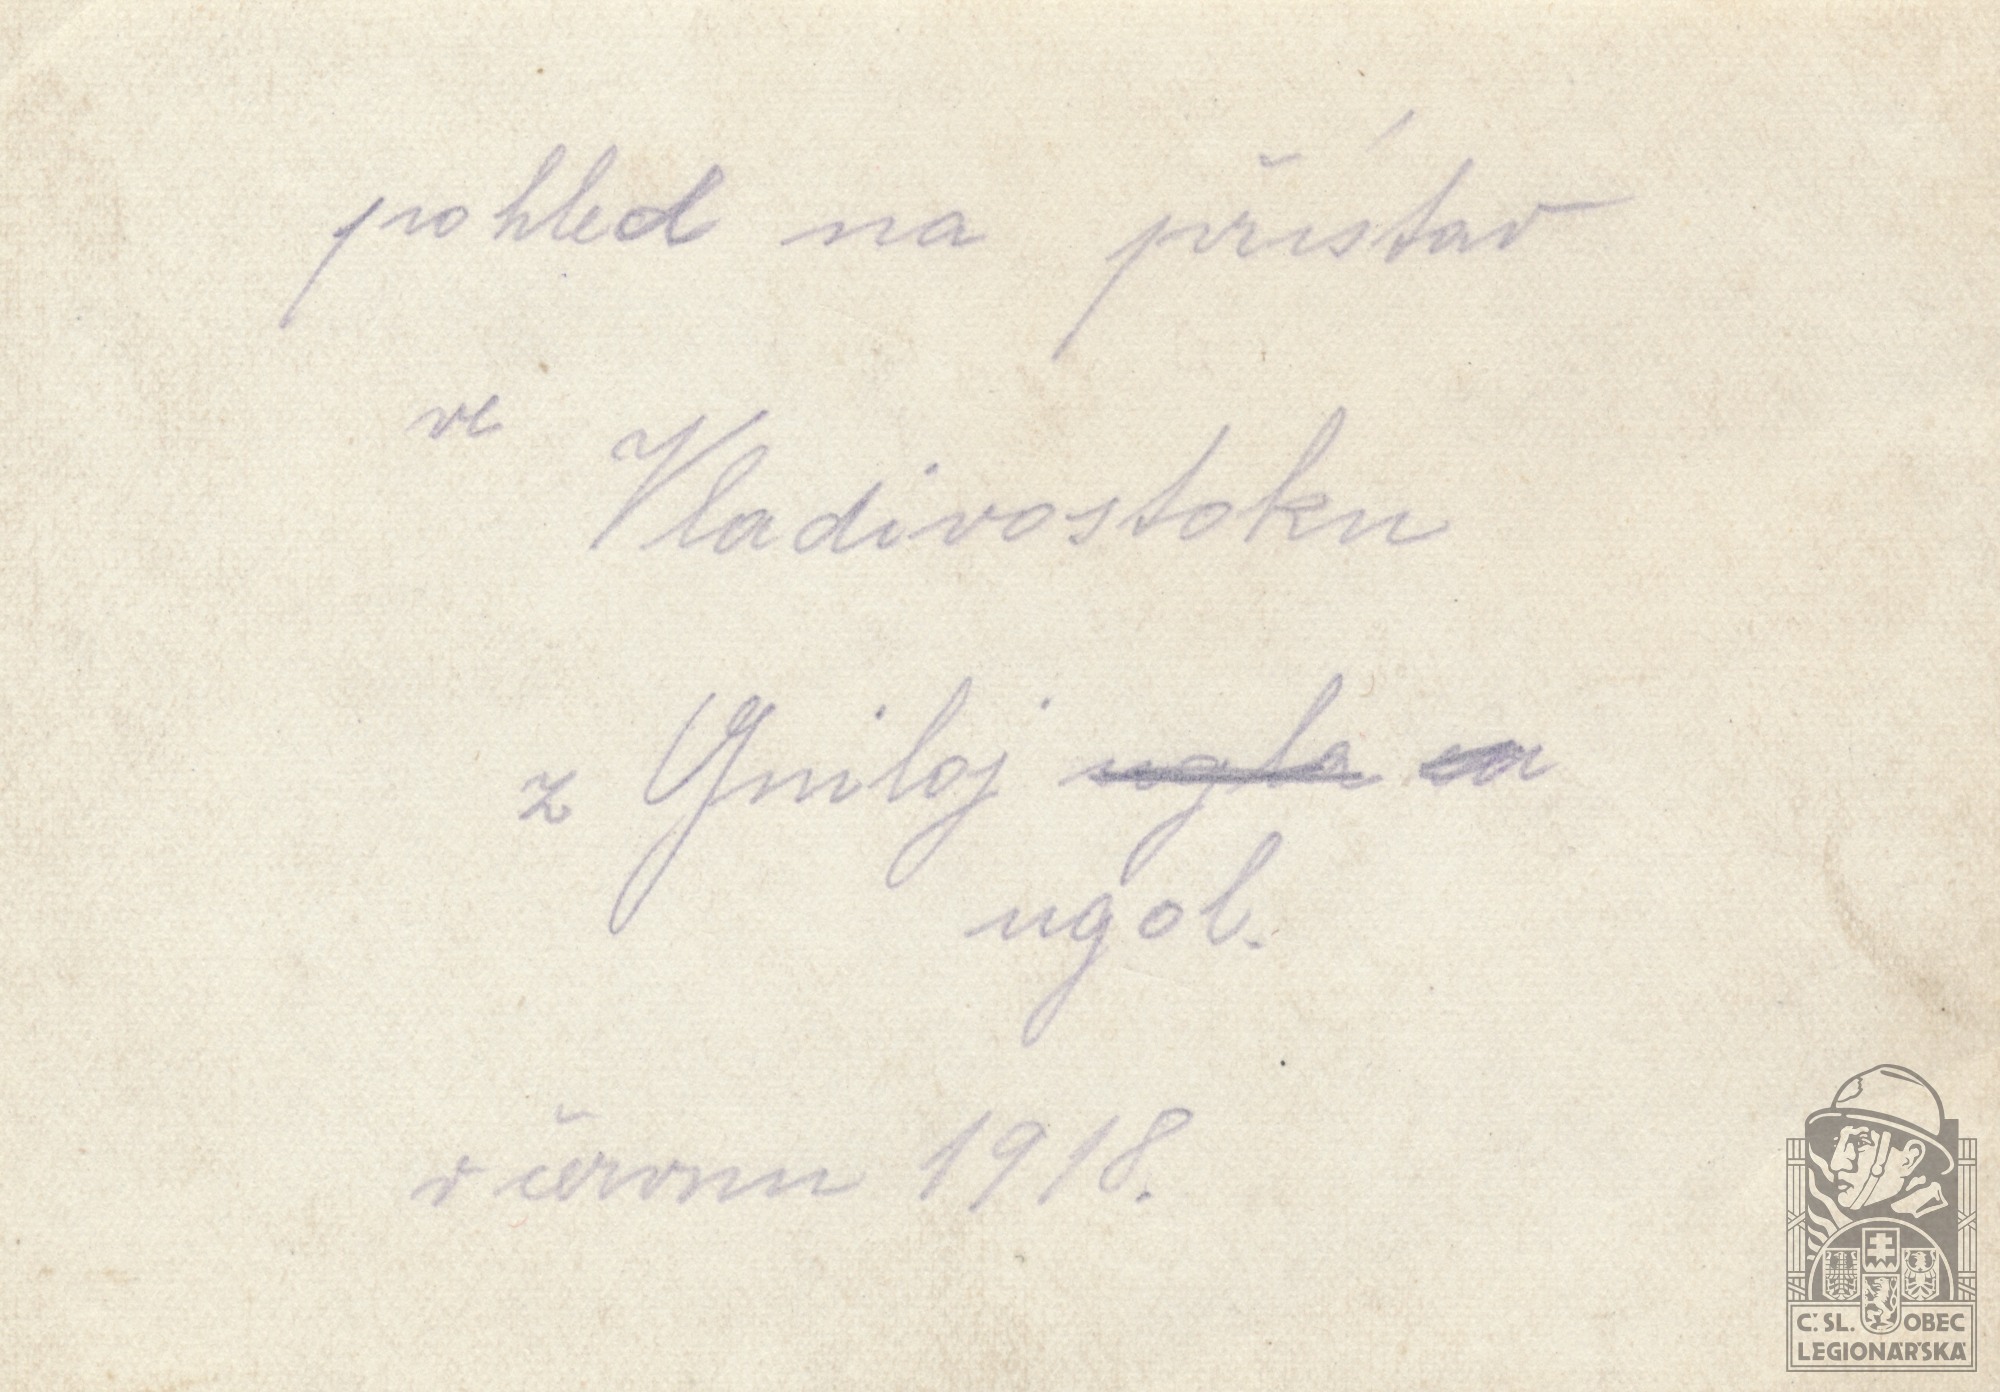 pohled na přístav
ve Vladivostoku
z Gniloj ugla
ugol.
v červnu 1918.
Č.SL. OBEC
LEGIONÁŘSKÁ